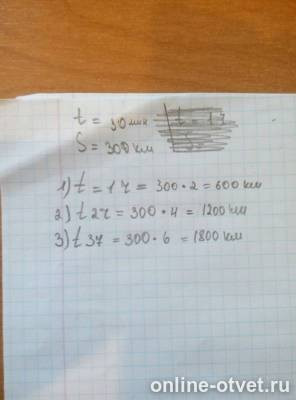 t = 30 мин
S = 300 км
1) t = 1 ч = 300 · 2 = 600 км
2) t 2ч = 300 · 4 = 1200 км
3) t 3ч = 300 · 6 = 1800 км
online-otvet.ru